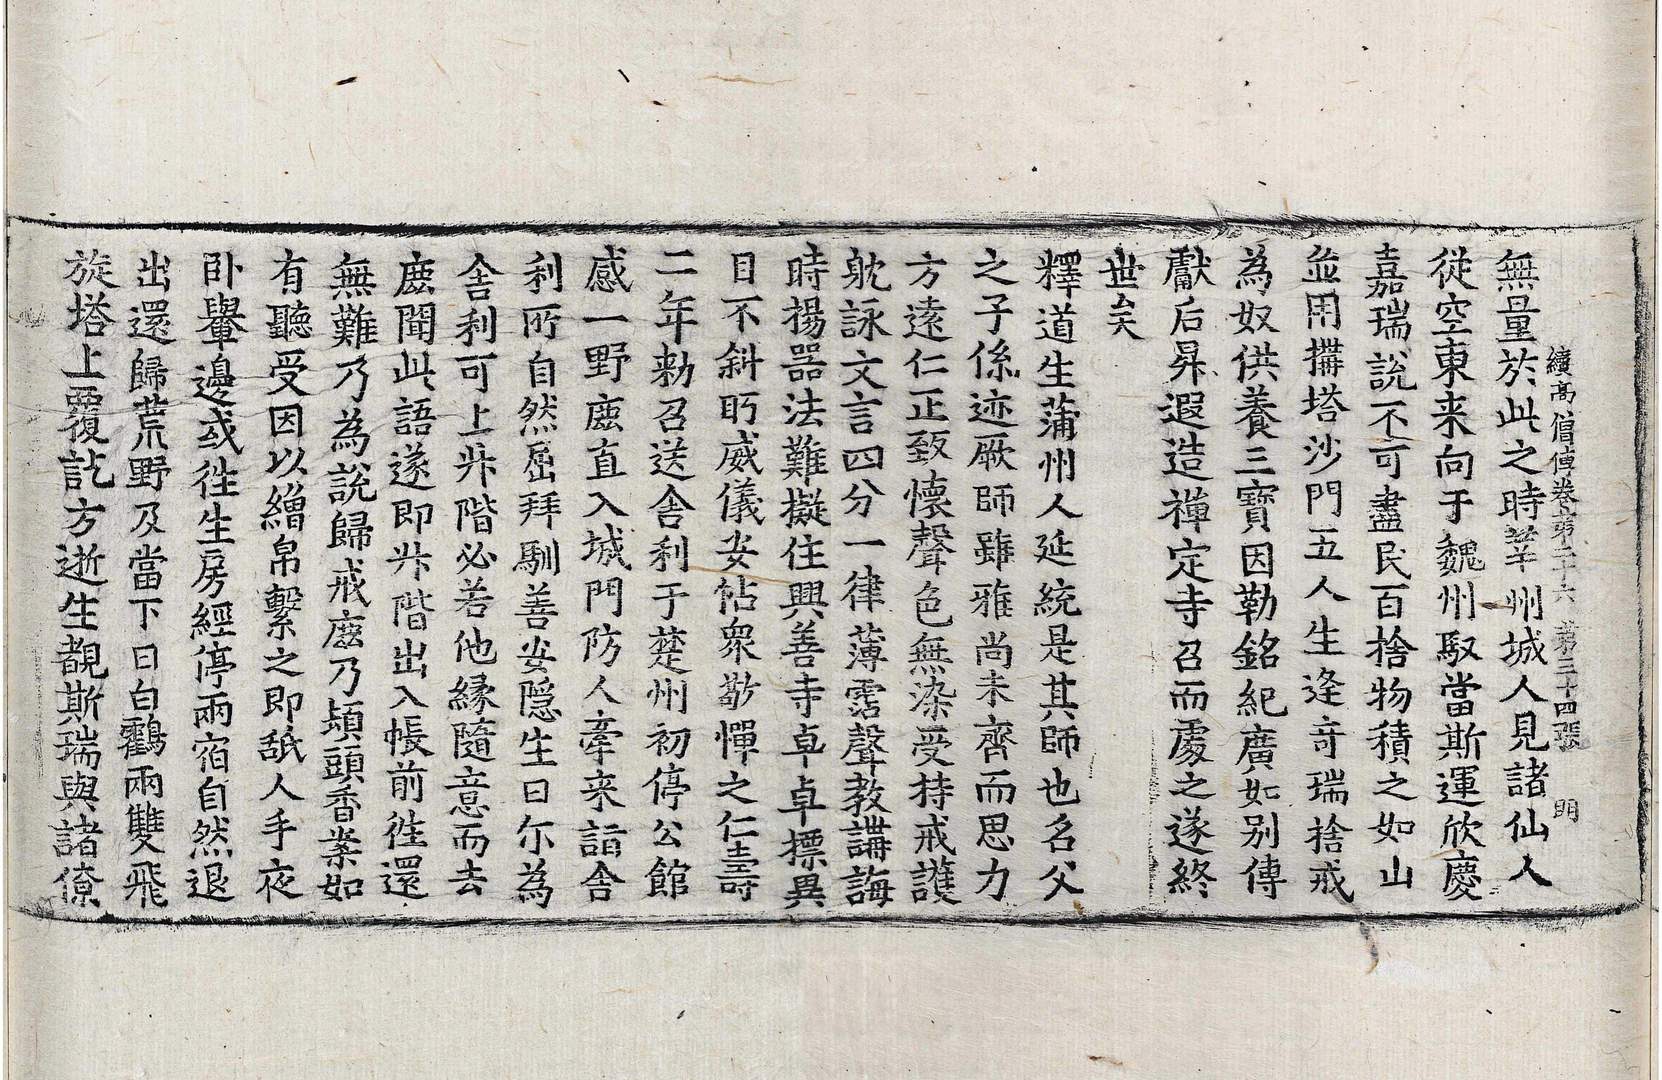 續高僧傳卷第二十六 第三十四張 明
無量於此之時莘州城人見諸仙人
從空東来向于魏州馭當斯運欣慶
嘉瑞說不可盡民百捨物積之如山
並用搆塔沙門五人生逢奇瑞捨戒
為奴供養三寶因勒銘紀廣如别傳
獻后昇遐造禪定寺召而處之遂終
世矣
釋道生蒲州人延統是其師也名父
之子係迹厥師雖雅尚未齊而思力
方遠仁正致懷聲色無染受持戒護
躭詠文言四分一律薄霑聲教講誨
時揚器法難擬住興善寺卓卓標異
目不斜眄威儀安帖衆敬憚之仁壽
二年勑召送舍利于楚州初停公館
感一野鹿直入城門防人牽来詣舍
利所自然屈拜馴善安隱生曰尓為
舍利可上升階必若他緣隨意而去
鹿聞此語遂即升階出入帳前徃還
無難乃為說歸戒鹿乃頓頭香案如
有聽受因以繒帛繫之即舐人手夜
卧轝邊或徃生房經停兩宿自然退
出還歸荒野及當下日白鸛兩雙飛
旋塔上覆訖方逝生覩斯瑞與諸僚